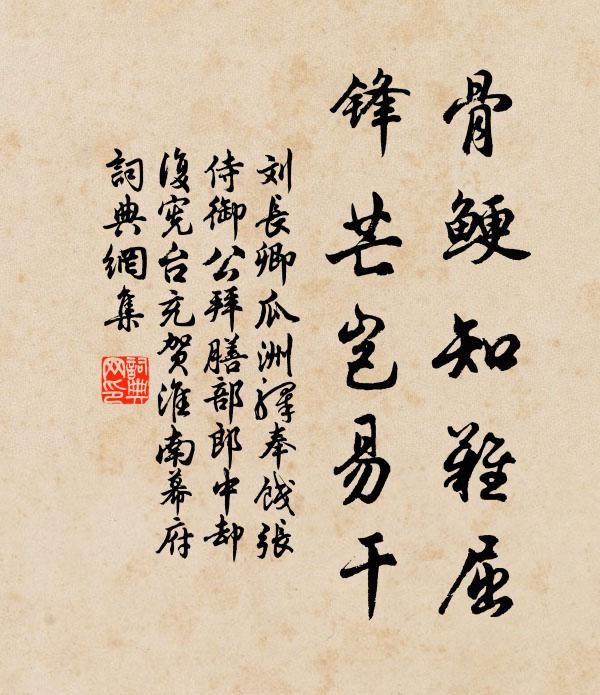 骨鲠知難屈
鋒芒岂易干
刘長卿瓜洲驛奉餞張
侍御公拜膳部郎中却
復宪台充贺淮南幕府
詞典網集
詞典
网印